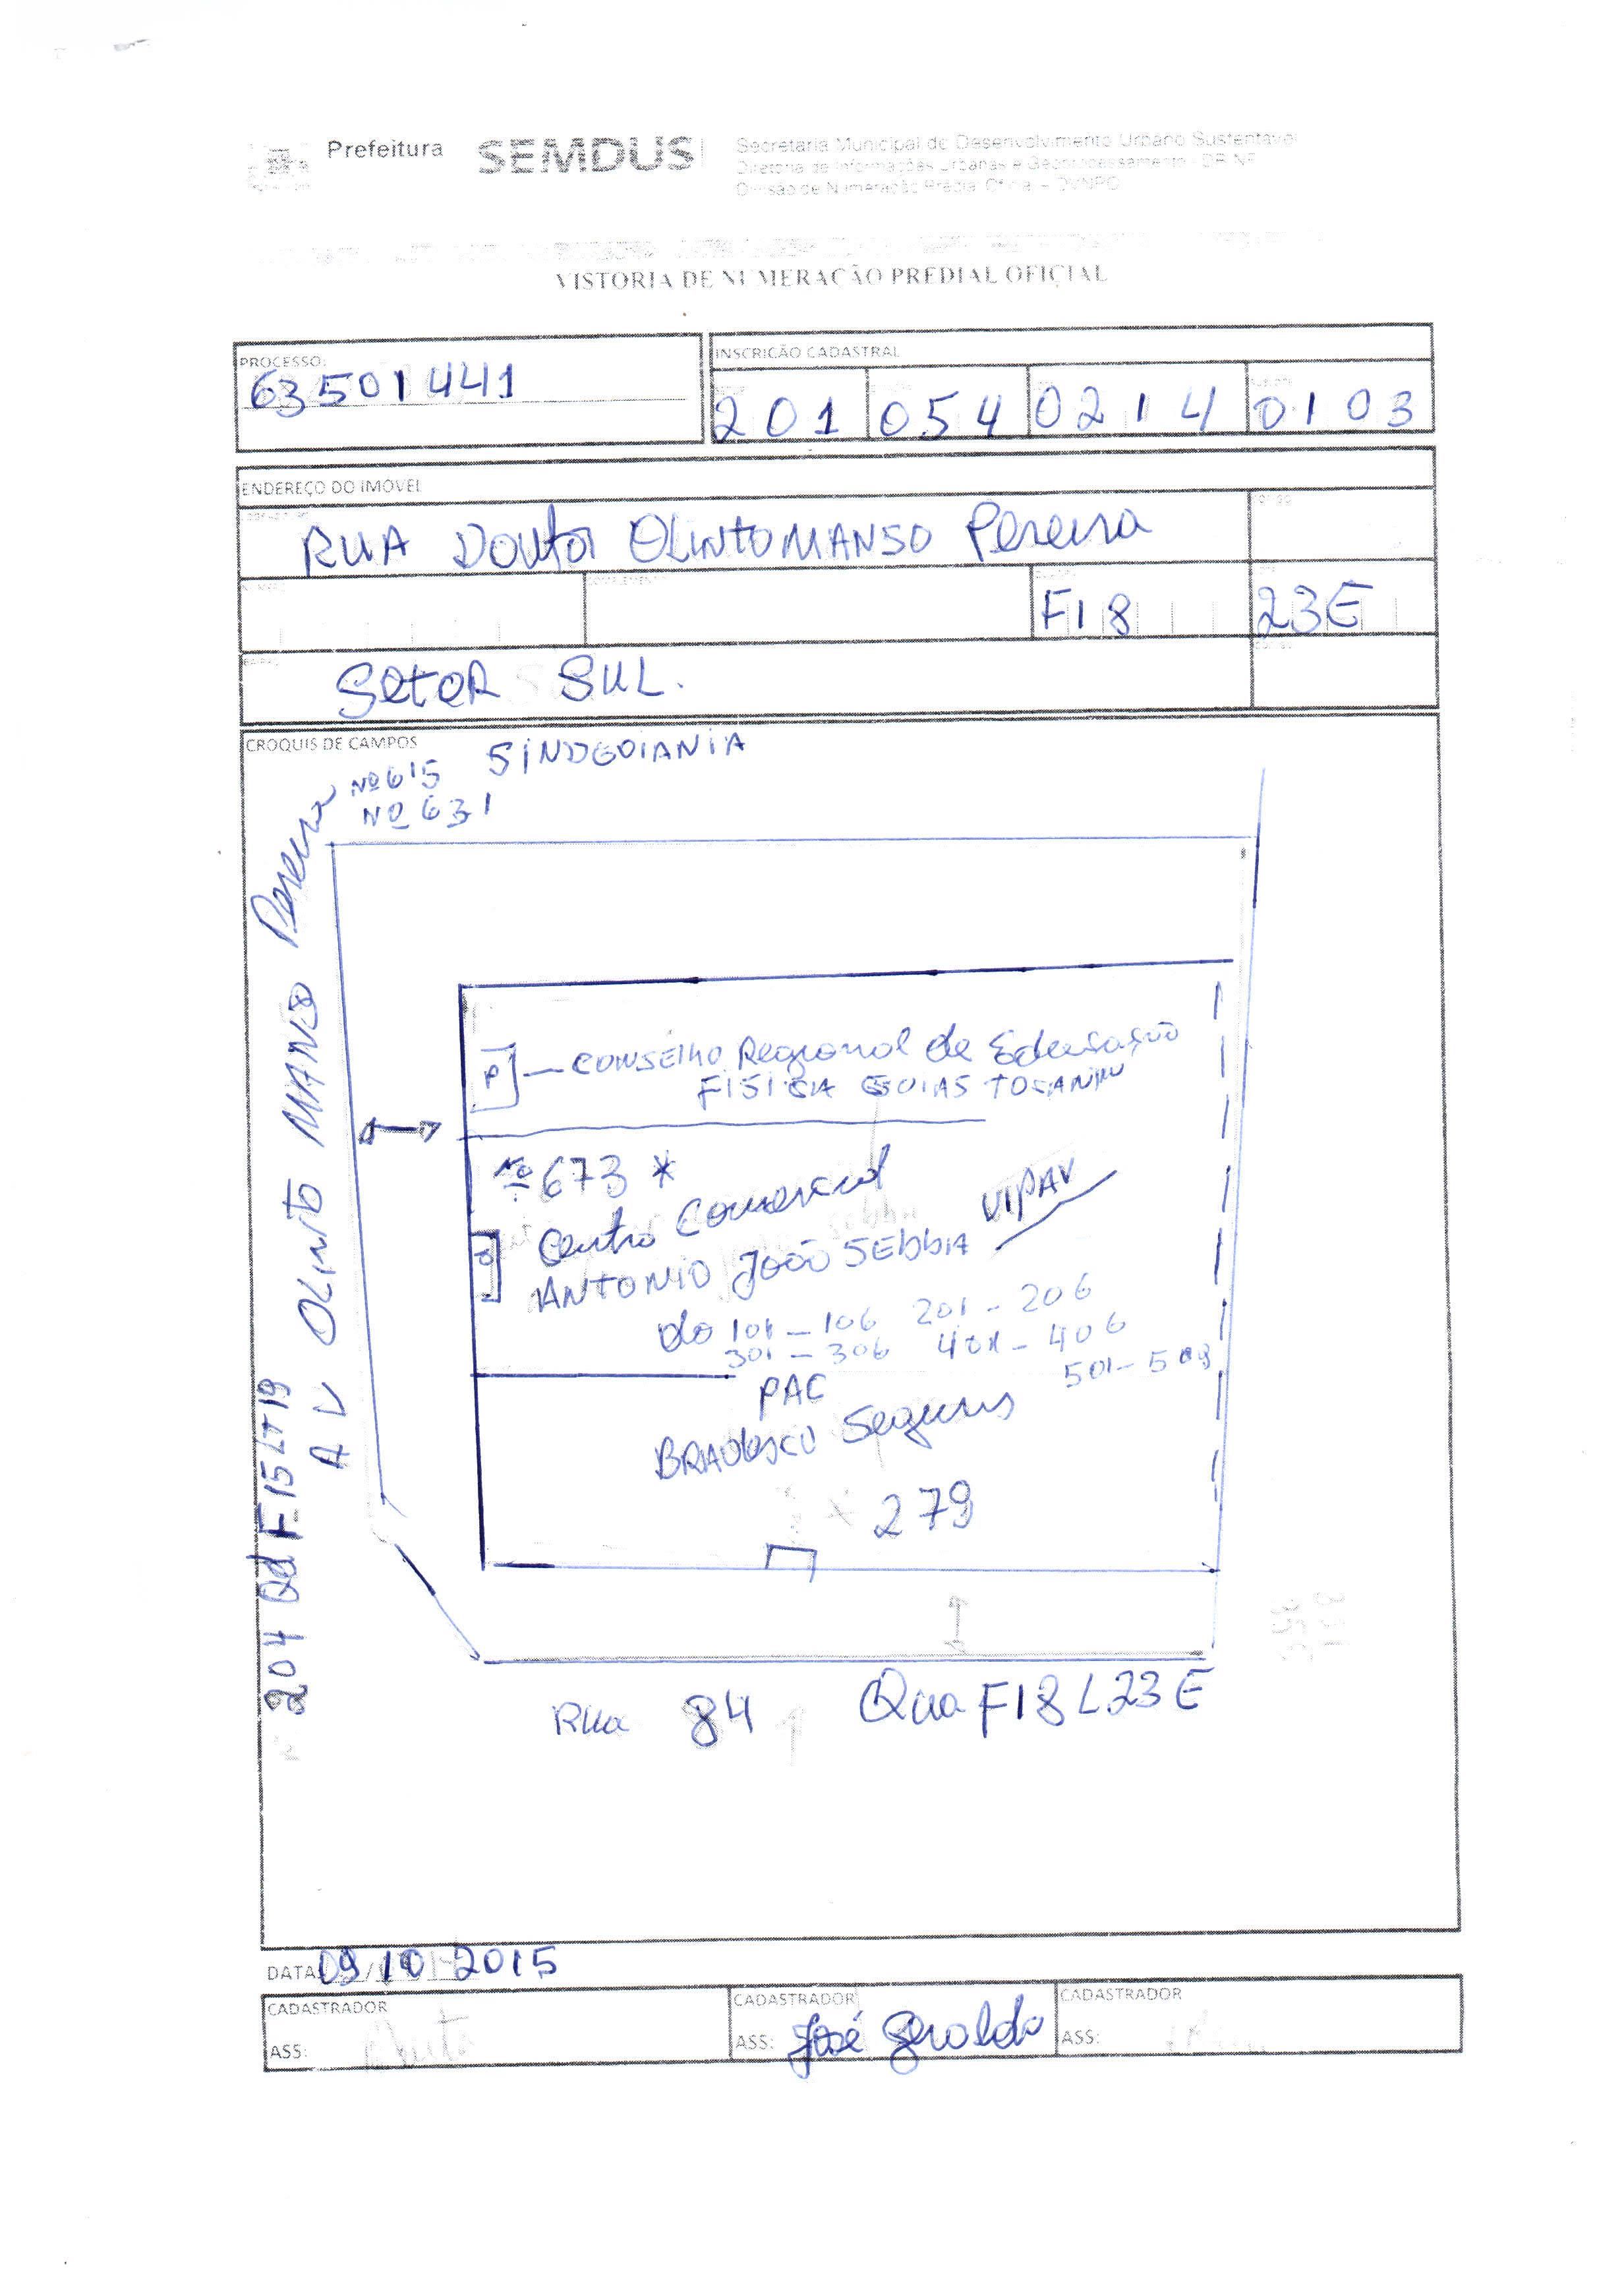 Prefeitura SEMDUS
Secretaria Municipal de Desenvolvimento Urbano Sustentável
Diretoria de Informações Urbanas e Geoprocessamento -
Divisão de Numeração Predial Oficial - DVNPO
VISTORIA DE NUMERAÇÃO PREDIAL OFICIAL
PROCESSO:
63501441
INSCRIÇÃO CADASTRAL
201 054 0214 0103
ENDEREÇO DO IMÓVEL
RUA Doutor OLINTO MANSO Pereira
F18 23E
SetoR SUL.
CROQUIS DE CAMPOS
Nº 615 SINDGOIANIA
Nº 631
AV OLINTO MANSO Pereira
204 Qd F15 LT 19
P - CONSELHO Regional de Educação
FISICA GOIAS TOCANTINS
Nº 673 *
Centro Comercial
ANTONIO JOÃO SEBBA VIPAV
do 101 - 106 201 - 206
301 - 306 401 - 406
501 - 509
PAC
BRADESCO Seguros
279
Rua 84 Qua F18 L23E
DATA: 09/10 2015
CADASTRADOR
ASS:
CADASTRADOR
ASS: José Geraldo
CADASTRADOR
ASS: